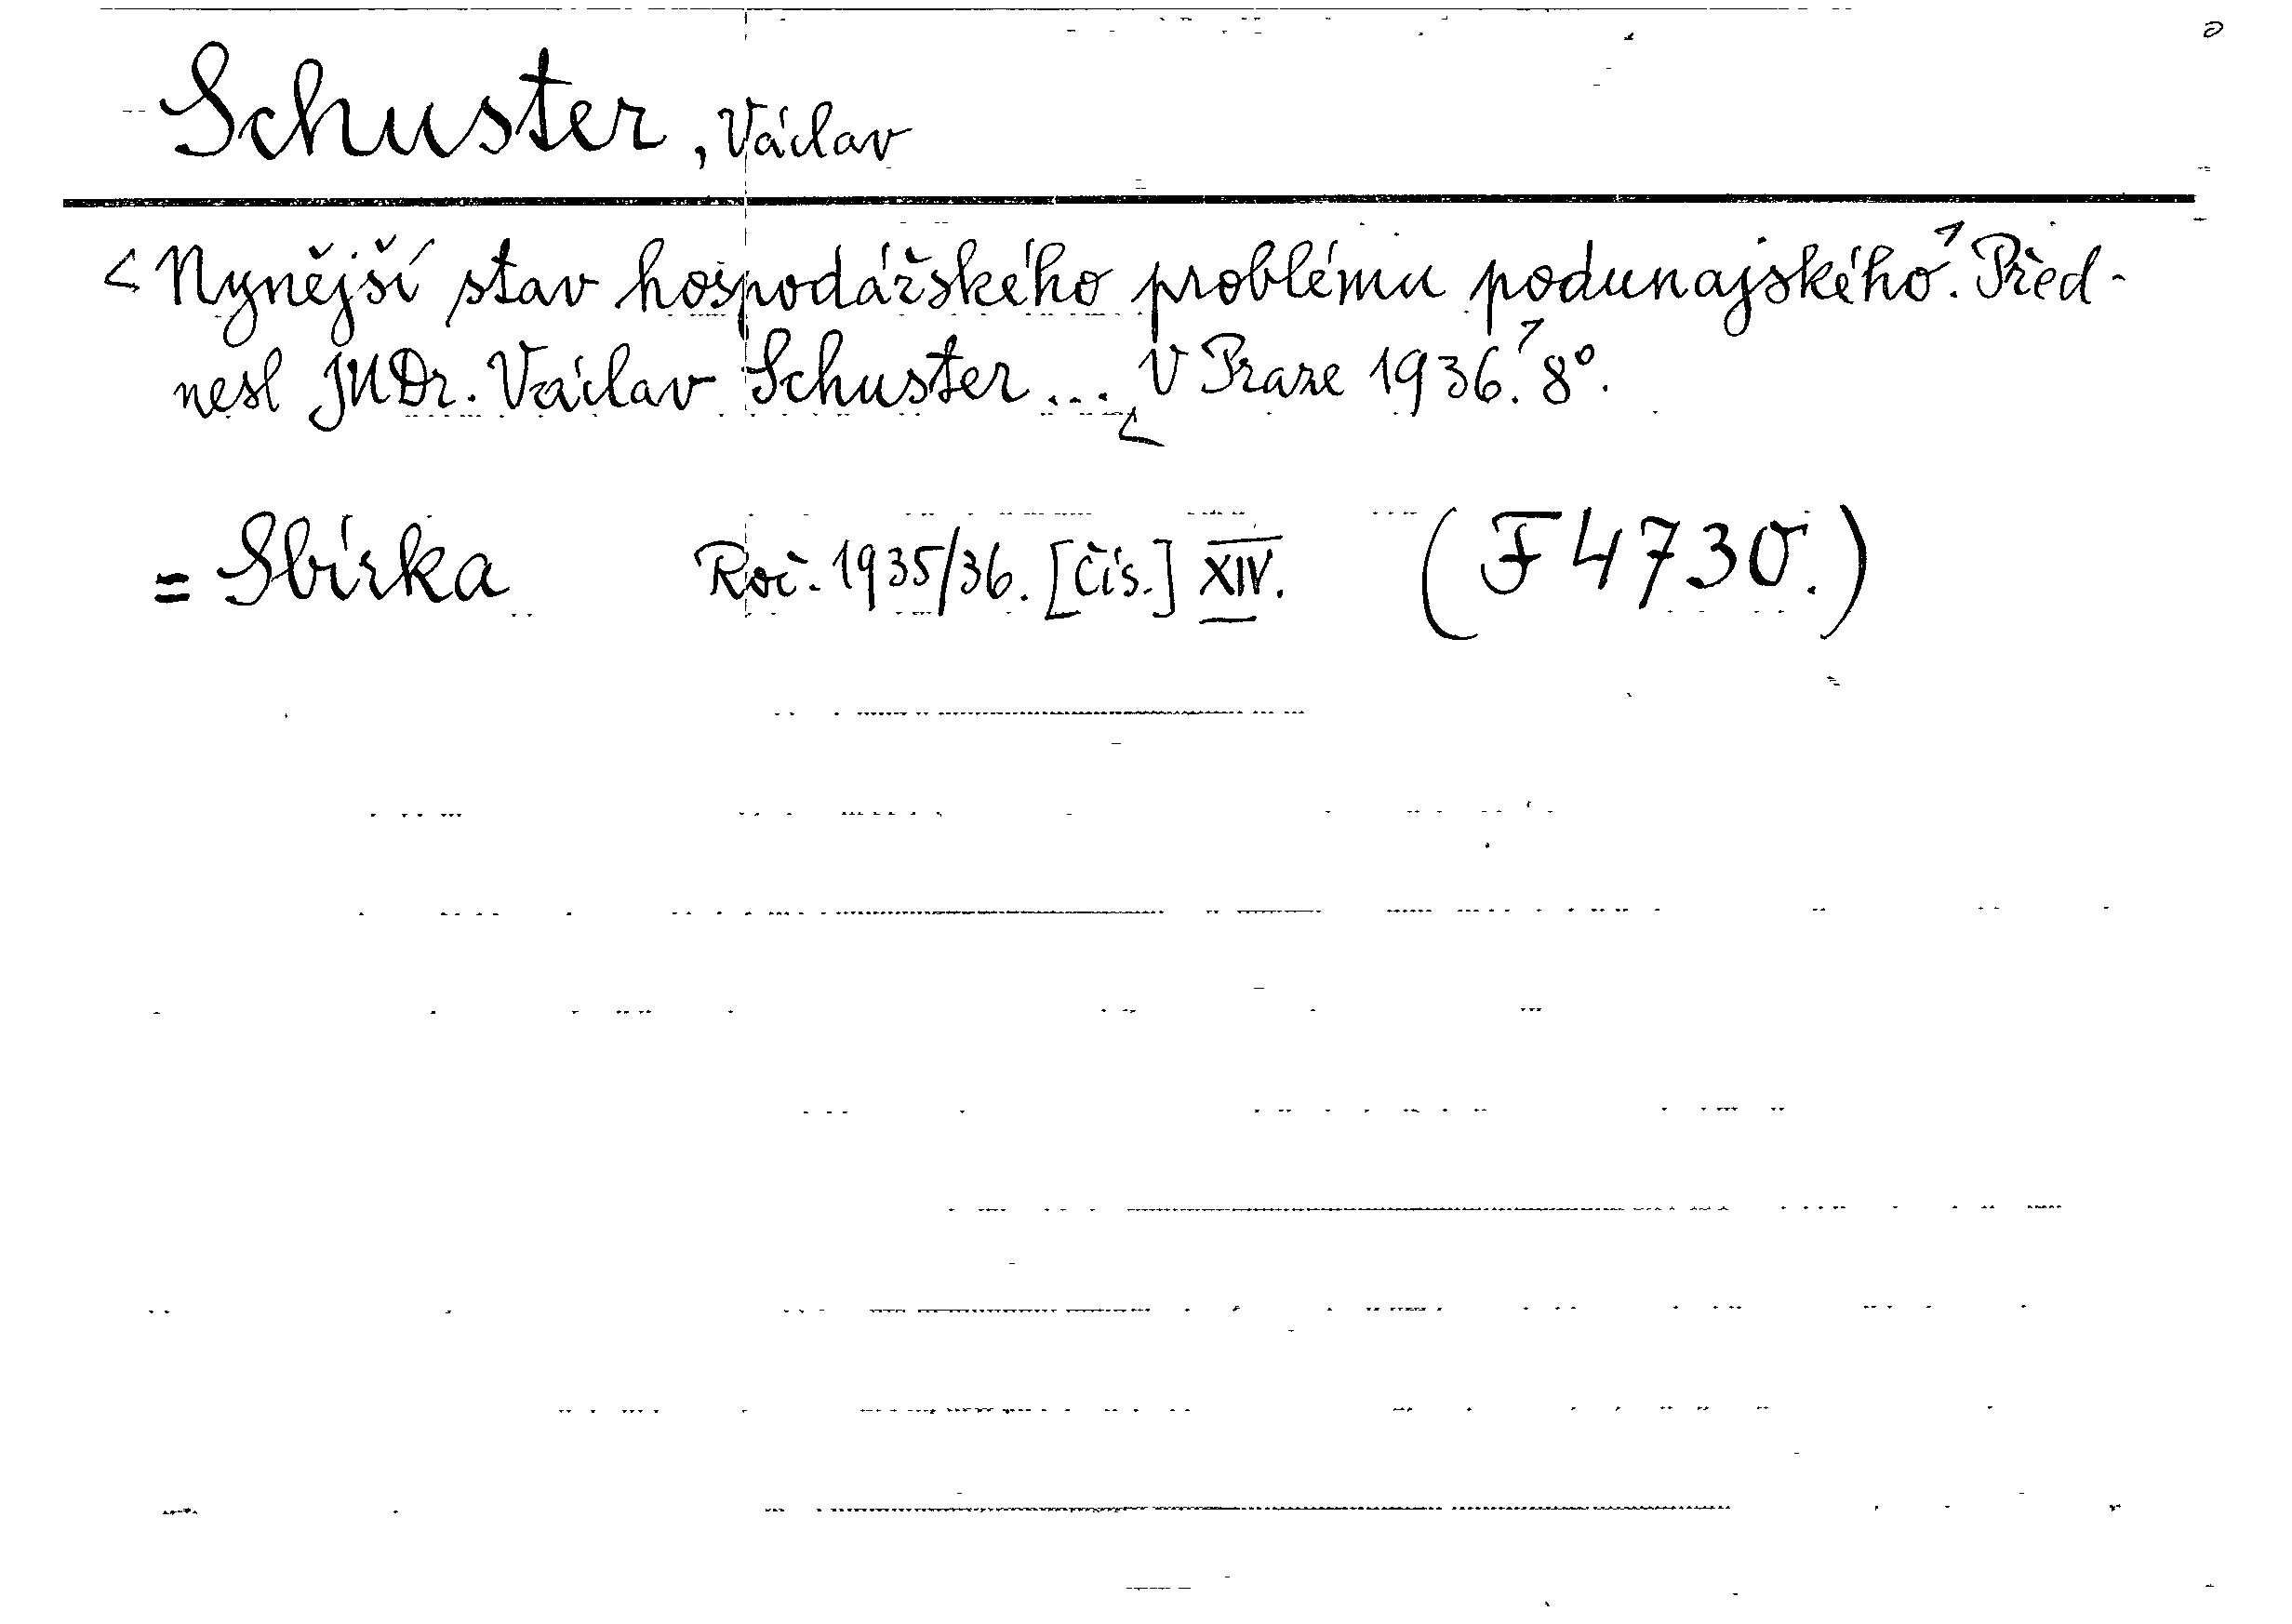 Schuster, Václav
< Nynější stav hospodářského problému podunajského. Před-
nesl JUDr. Václav Schuster ... V Praze 1936. 8°.
= Sbírka Roč. 1935/36. [Čís.] XIV. (F 4730.)